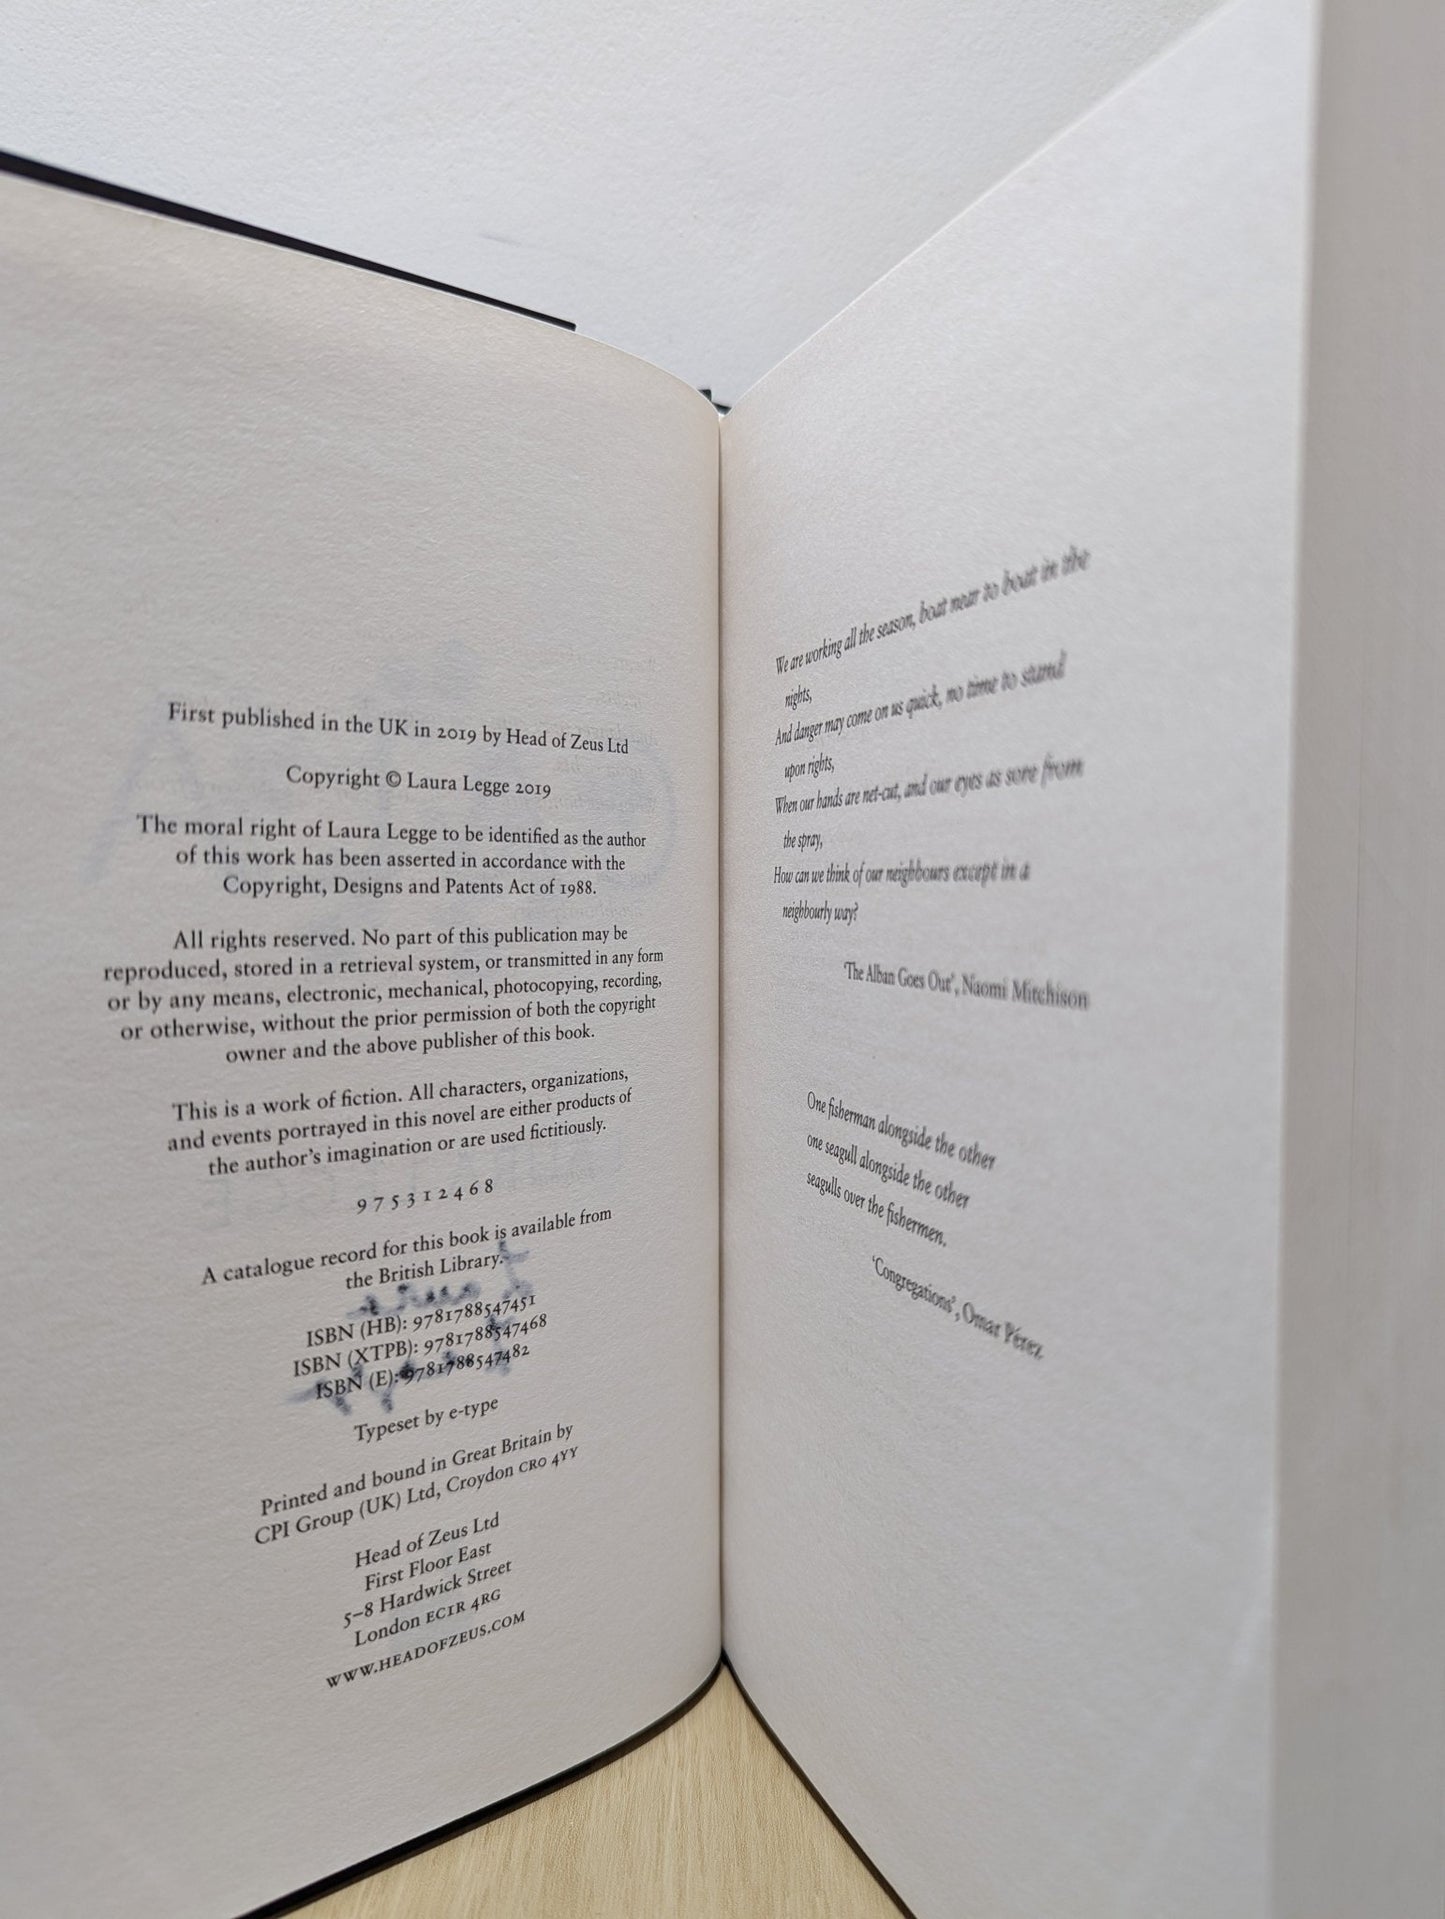 First published in the UK in 2019 by Head of Zeus Ltd
Copyright © Laura Legge 2019
The moral right of Laura Legge to be identified as the author
of this work has been asserted in accordance with the
Copyright, Designs and Patents Act of 1988.
All rights reserved. No part of this publication may be
reproduced, stored in a retrieval system, or transmitted in any form
or by any means, electronic, mechanical, photocopying, recording,
or otherwise, without the prior permission of both the copyright
owner and the above publisher of this book.
This is a work of fiction. All characters, organizations,
and events portrayed in this novel are either products of
the author's imagination or are used fictitiously.
9 7 5 3 1 2 4 6 8
A catalogue record for this book is available from
the British Library.
ISBN (HB): 9781788547451
ISBN (XTPB): 9781788547468
ISBN (E): 9781788547482
Typeset by e-type
Printed and bound in Great Britain by
CPI Group (UK) Ltd, Croydon CR0 4YY
Head of Zeus Ltd
First Floor East
5–8 Hardwick Street
London EC1R 4RG
WWW.HEADOFZEUS.COM
We are working all the season, boat near to boat in the
nights,
And danger may come on us quick, no time to stand
upon rights,
When our hands are net-cut, and our eyes as sore from
the spray,
How can we think of our neighbours except in a
neighbourly way?
'The Alban Goes Out', Naomi Mitchison
One fisherman alongside the other
one seagull alongside the other
seagulls over the fishermen.
'Congregations', Omar Pérez